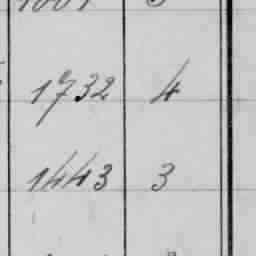 1732 4
1443 3